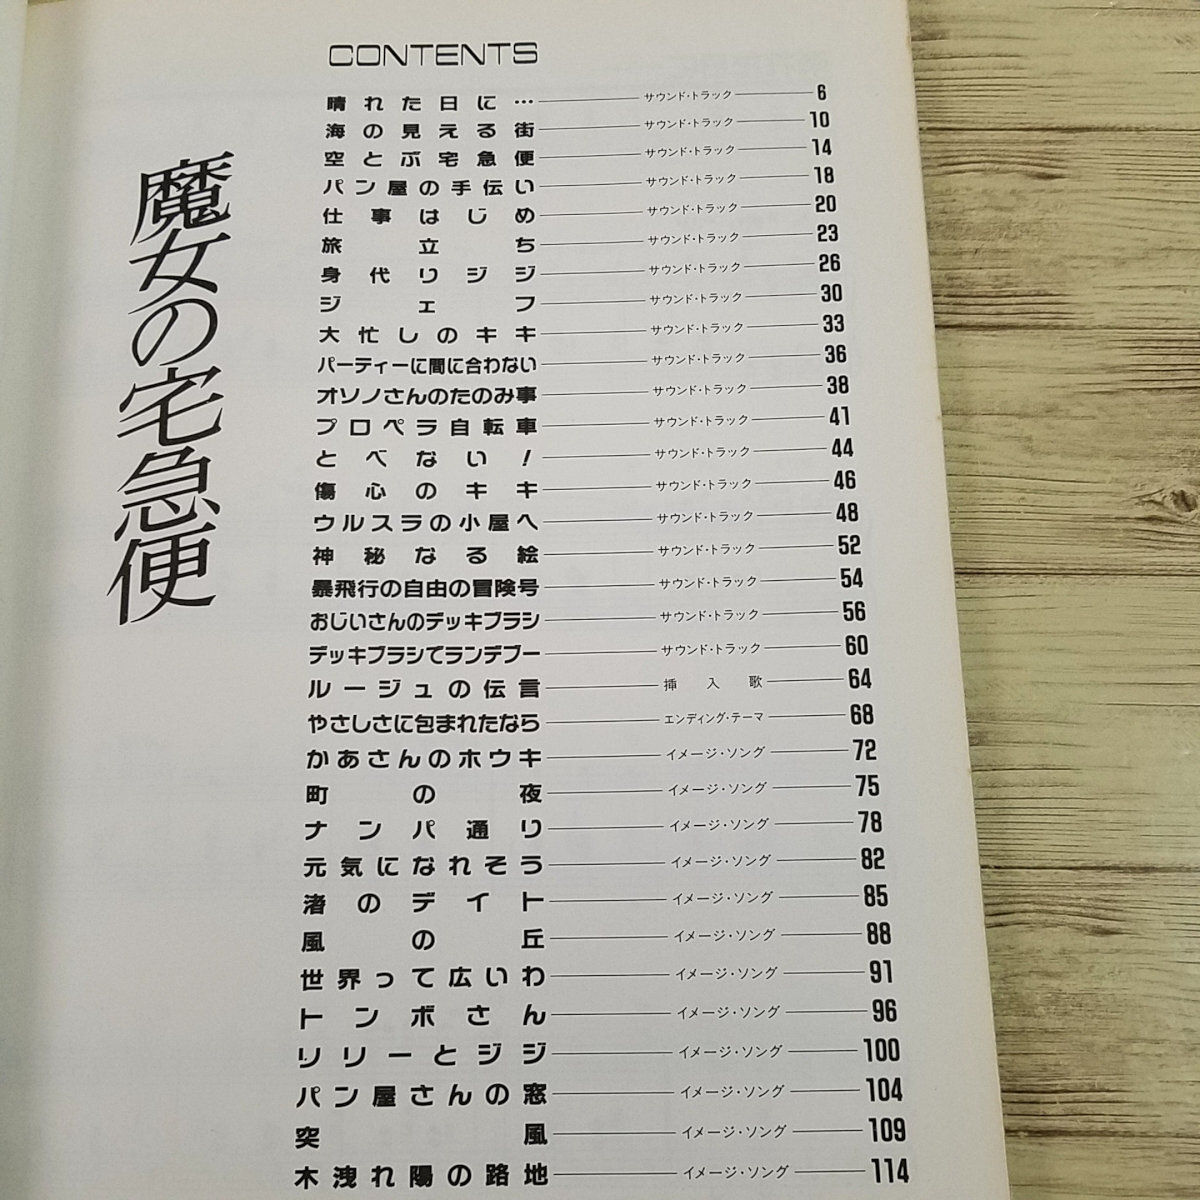 CONTENTS
魔女の宅急便
晴れた日に… サウンド・トラック 6
海の見える街 サウンド・トラック 10
空とぶ宅急便 サウンド・トラック 14
パン屋の手伝い サウンド・トラック 18
仕事はじめ サウンド・トラック 20
旅立ち サウンド・トラック 23
身代りジジ サウンド・トラック 26
ジェフ サウンド・トラック 30
大忙しのキキ サウンド・トラック 33
パーティーに間に合わない サウンド・トラック 36
オソノさんのたのみ事 サウンド・トラック 38
プロペラ自転車 サウンド・トラック 41
とべない! サウンド・トラック 44
傷心のキキ サウンド・トラック 46
ウルスラの小屋へ サウンド・トラック 48
神秘なる絵 サウンド・トラック 52
暴飛行の自由の冒険号 サウンド・トラック 54
おじいさんのデッキブラシ サウンド・トラック 56
デッキブラシでランデブー サウンド・トラック 60
ルージュの伝言 挿入歌 64
やさしさに包まれたなら エンディング・テーマ 68
かあさんのホウキ イメージ・ソング 72
町の夜 イメージ・ソング 75
ナンパ通り イメージ・ソング 78
元気になれそう イメージ・ソング 82
渚のデイト イメージ・ソング 85
風の丘 イメージ・ソング 88
世界って広いわ イメージ・ソング 91
トンボさん イメージ・ソング 96
リリーとジジ イメージ・ソング 100
パン屋さんの窓 イメージ・ソング 104
突風 イメージ・ソング 109
木洩れ陽の路地 イメージ・ソング 114